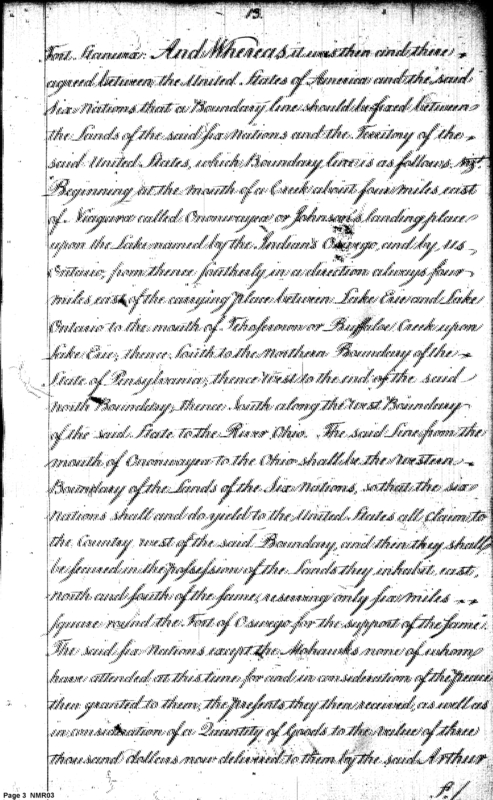 13.
Fort Stanwix. And Whereas it was then and there
agreed between the United States of America and the said
Six Nations that a Boundary line should be fixed between
the Lands of the said Six Nations and the Territory of the
said United States, which Boundary line is as follows, vizt.
Beginning at the mouth of a Creek about four miles east
of Niagara called Ononwayea or Johnson's landing place
upon the Lake named by the Indians Oswego, and by us
Ontario, from thence southerly in a direction always four
miles east of the carrying place between Lake Erie and Lake
Ontario to the mouth of Tehoseroron or Buffaloe Creek upon
Lake Erie; thence South to the northern Boundary of the
State of Pensylvania; thence West to the end of the said
north Boundary; thence South along the West Boundary
of the said State to the River Ohio. The said Line from the
mouth of Ononwayea to the Ohio shall be the western
Boundary of the Lands of the Six Nations, so that the six
Nations shall and do yield to the United States all Claim to
the Country west of the said Boundary, and then they shall
be secured in the Possession of the Lands they inhabit east,
north and south of the same, reserving only six miles
square round the Fort of Oswego for the support of the same.
The said Six Nations except the Mohawks none of whom
have attended at this time for and in consideration of the peace
then granted to them, the presents they then received, as well as
in consideration of a Quantity of Goods to the value of three
thousand dollars now delivered to them by the said Arthur
St
Page 3 NMR03